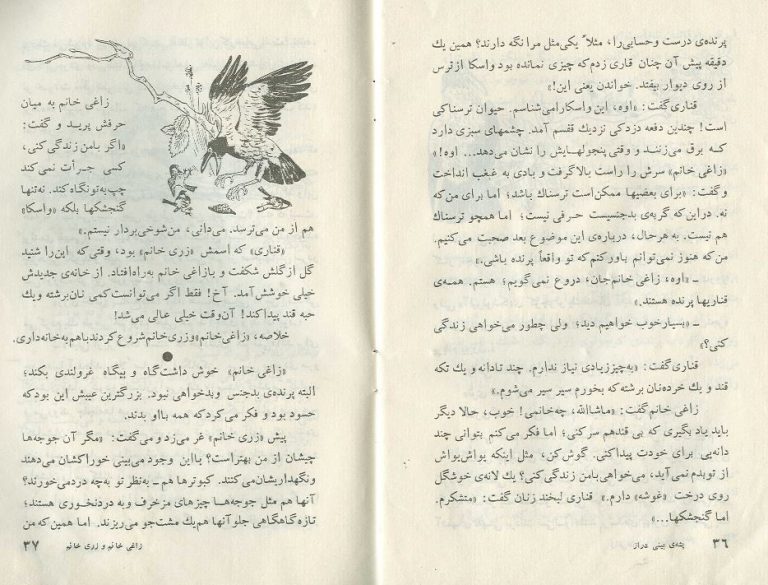 پرنده‌ی درست وحسابی را، مثلاً یکی مثل مرا نگه دارند؟ همین یك
دقیقه پیش آن چنان قاری زدم که چیزی نمانده بود واسکا از ترس
از روی دیوار بیفتد. خواندن یعنی این!»
قناری گفت: «اوه، این واسکا را می‌شناسم. حیوان ترسناکی
است! چندین دفعه دزدکی نزدیك قفسم آمد. چشمهای سبزی دارد
که برق می‌زنند و وقتی پنجولهایش را نشان می‌دهد... اوه!»
«زاغی خانم» سرش را راست بالا گرفت و بادی به غبغب انداخت
و گفت: «برای بعضیها ممکن است ترسناك باشد؛ اما برای من که
نه. در این که گربه‌ی بدجنسیست حرفی نیست؛ اما همچو ترسناك
هم نیست. به هرحال، درباره‌ی این موضوع بعد صحبت می‌کنیم.
من که هنوز نمی‌توانم باور کنم که تو واقعاً پرنده باشی.»
ـ «اوه، زاغی خانم جان، دروغ نمی‌گویم؛ هستم. همه‌ی
قناریها پرنده هستند.»
ـ «بسیار خوب خواهیم دید؛ ولی چطور می‌خواهی زندگی
کنی؟»
قناری گفت: «به چیز زیادی نیاز ندارم. چند تا دانه و یك تکه
قند و یك خرده نان برشته که بخورم سیر سیر می‌شوم.»
زاغی خانم گفت: «ماشاالله، چه خانمی! خوب، حالا دیگر
باید یاد بگیری که بی قند هم سر کنی؛ اما فکر می‌کنم بتوانی چند
دانه‌یی برای خودت پیدا کنی. گوش کن، مثل اینکه یواش یواش
از تو بدم نمی‌آید، می‌خواهی با من زندگی کنی؟ یك لانه‌ی خوشگل
روی درخت «غوشه» دارم.» قناری لبخند زنان گفت: «متشکرم.
اما گنجشکها...»
۳۶ پشه‌ی بینی دراز
زاغی خانم به میان
حرفش پرید و گفت:
«اگر با من زندگی کنی،
کسی جرأت نمی‌کند
چپ به تو نگاه کند. نه‌تنها
گنجشکها بلکه «واسکا»
هم از من می‌ترسد. می‌دانی، من شوخی بردار نیستم.»
«قناری» که اسمش «زری خانم» بود، وقتی که این را شنید
گل از گلش شکفت و با زاغی خانم به‌راه افتاد. از خانه‌ی جدیدش
خیلی خوشش آمد. آخ! فقط اگر می‌توانست کمی نان برشته و یك
حبه قند پیدا کند! آن وقت خیلی عالی می‌شد!
خلاصه، «زاغی خانم» و زری خانم شروع کردند با هم به خانه‌داری.
«زاغی خانم» خوش داشت گاه و بیگاه غرولندی بکند؛
البته پرنده‌ی بدجنس و بدخواهی نبود. بزرگترین عیبش این بود که
حسود بود و فکر می‌کرد که همه با او بدند.
پیش «زری خانم» غر می‌زد و می‌گفت: «مگر آن جوجه‌ها
چیشان از من بهتر است؟ با این وجود می‌بینی خوراکشان می‌دهند
و نگهداریشان می‌کنند. کبوترها هم ـ به‌نظر تو به‌چه درد می‌خورند؟
آنها هم مثل جوجه‌ها چیزهای مزخرف و به‌دردنخوری هستند؛
تازه گاهگاهی جلو آنها هم یك مشت جو می‌ریزند. اما همین که من
زاغی خانم و زری خانم ۳۷